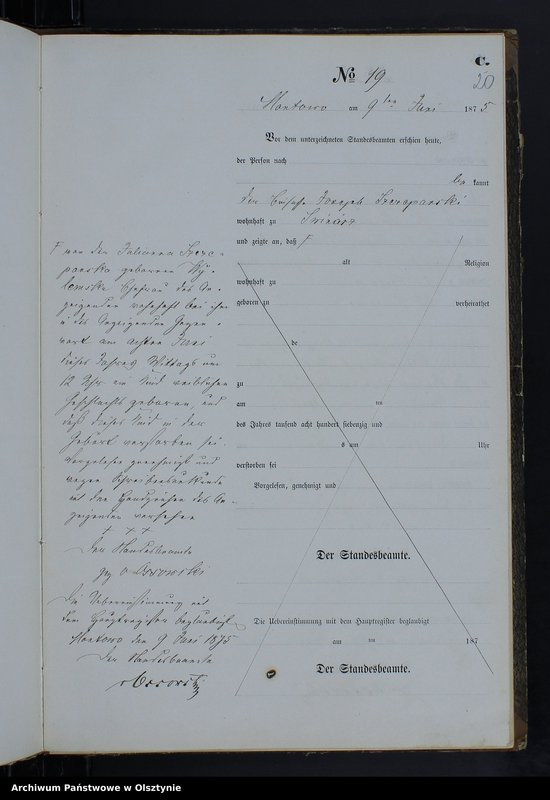 C.
20
No 19
Montowo am 9 ten Juni 1875
Vor dem unterzeichneten Standesbeamten erschien heute,
der Person nach
be kannt
der Joseph Szczepanski
wohnhaft zu Swiniarz
und zeigte an, daß
alt Religion
wohnhaft zu
geboren zu verheirathet
de
zu
am im
des Jahres tausend acht hundert siebenzig und
s um Uhr
verstorben sei
Vorgelesen, genehmigt und
Der Standesbeamte.
Die Uebereinstimmung mit dem Hauptregister beglaubigt
am im 187
Der Standesbeamte.
von der Julianna Szcze-
panska geborenen
Ehefrau des An-
zeigenden wohnhaft bei ihm
in des Anzeigenden Gegen-
wart am achten Juni
dieses Jahres Mittags um
12 Uhr ein Kind weiblichen
Geschlechts geboren, und
daß dieses Kind in der
Geburt verstorben sei.
Vorgelesen genehmigt und
wegen Schreibensunkunde
mit den Handzeichen des An-
zeigenden versehen
+ + +
Der Standesbeamte
gez v Ossowski
Die Uebereinstimmung mit
dem Hauptregister beglaubigt
Montowo den 9 Juni 1875
Der Standesbeamte
v Ossowski
Archiwum Państwowe w Olsztynie